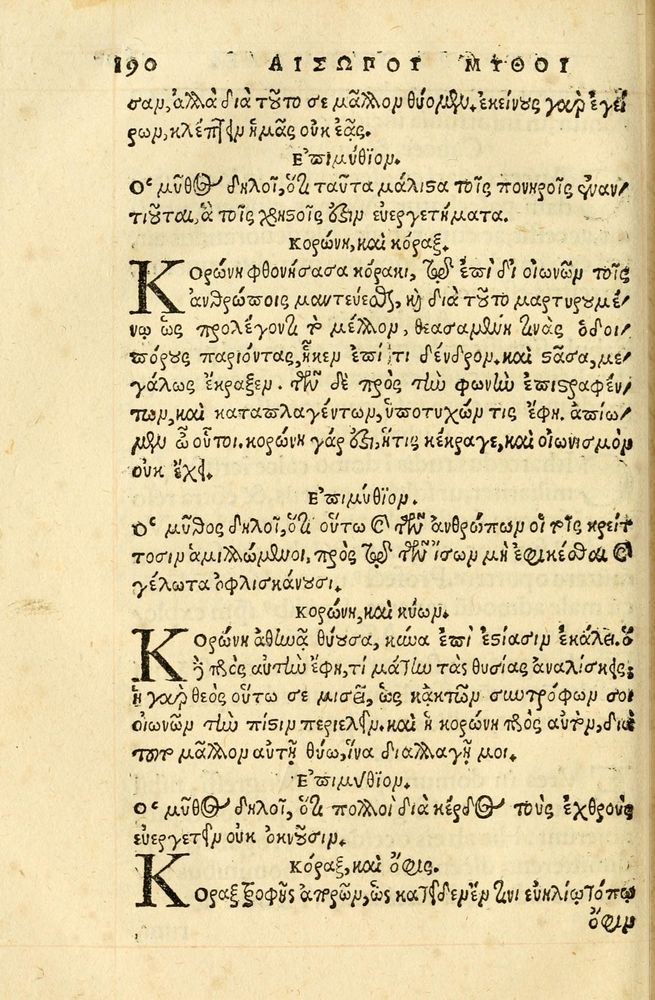 190 ΑΙΣΩΠΟΥ ΜΥΘΟΙ
σαν, ἀλλὰ διὰ τοῦτο σε μᾶλλον θύομεν. ἐκείνους γὰρ ἐγεί
ρων, κλέπτειν ἡμᾶς οὐκ ἐᾷς.
Ἐπιμύθιον.
Ὁ μῦθος δηλοῖ, ὅτι ταῦτα μάλιστα τοῖς πονηροῖς ἐναν/
τιοῦται, ἃ τοῖς χρηστοῖς ἐστιν εὐεργετήματα.
κορώνη, καὶ κόραξ.
Κορώνη φθονήσασα κόρακι, τῷ ἐπὶ δι οἰωνῶν τοῖς
ἀνθρώποις μαντεύεσθαι, καὶ διὰ τοῦτο μαρτυρουμέ/
νῳ ὡς προλέγοντι τὸ μέλλον, θεασαμένη τινὰς ὁδοι/
πόρους παριόντας, ἧκεν ἐπί τι δένδρον. καὶ στᾶσα, με/
γάλως ἔκραξεν. τῶν δὲ πρὸς τὴν φωνὴν ἐπιστραφέν/
των, καὶ καταπλαγέντων, ὑποτυχών τις ἔφη. ἀπίω/
μεν ὦ οὗτοι. κορώνη γάρ ἐστι, ἥτις κέκραγε, καὶ οἰωνισμὸν
οὐκ ἔχει.
Ἐπιμύθιον.
Ὁ μῦθος δηλοῖ, ὅτι οὕτω καὶ τῶν ἀνθρώπων οἱ τοῖς κρείτ
τοσιν ἁμιλλώμενοι, πρὸς τῷ τῶν ἴσων μὴ ἐφικέσθαι καὶ
γέλωτα ὀφλισκάνουσι.
κορώνη, καὶ κύων.
Κορώνη ἀθηνᾷ θύουσα, κύνα ἐπὶ ἑστίασιν ἐκάλει. ὁ
δὲ πρὸς αὐτὴν ἔφη, τί μάτην τὰς θυσίας ἀναλίσκεις;
ἡ γὰρ θεὸς οὕτω σε μισεῖ, ὡς κἀκ τῶν συντρόφων σοι
οἰωνῶν τὴν πίστιν περιελεῖν. καὶ ἡ κορώνη πρὸς αὐτόν, διὰ
τοῦτο μᾶλλον αὐτῇ θύω, ἵνα διαλλαγῇ μοι.
Ἐπιμύθιον.
Ὁ μῦθος δηλοῖ, ὅτι πολλοὶ διὰ κέρδος τοὺς ἐχθροὺς
εὐεργετεῖν οὐκ ὀκνοῦσιν.
Κόραξ, καὶ ὄφις.
Κοραξ τροφῆς ἀπορῶν, ὡς κατεῖδεν ἔν τινι εὐηλίῳ τόπῳ
ὄφιν